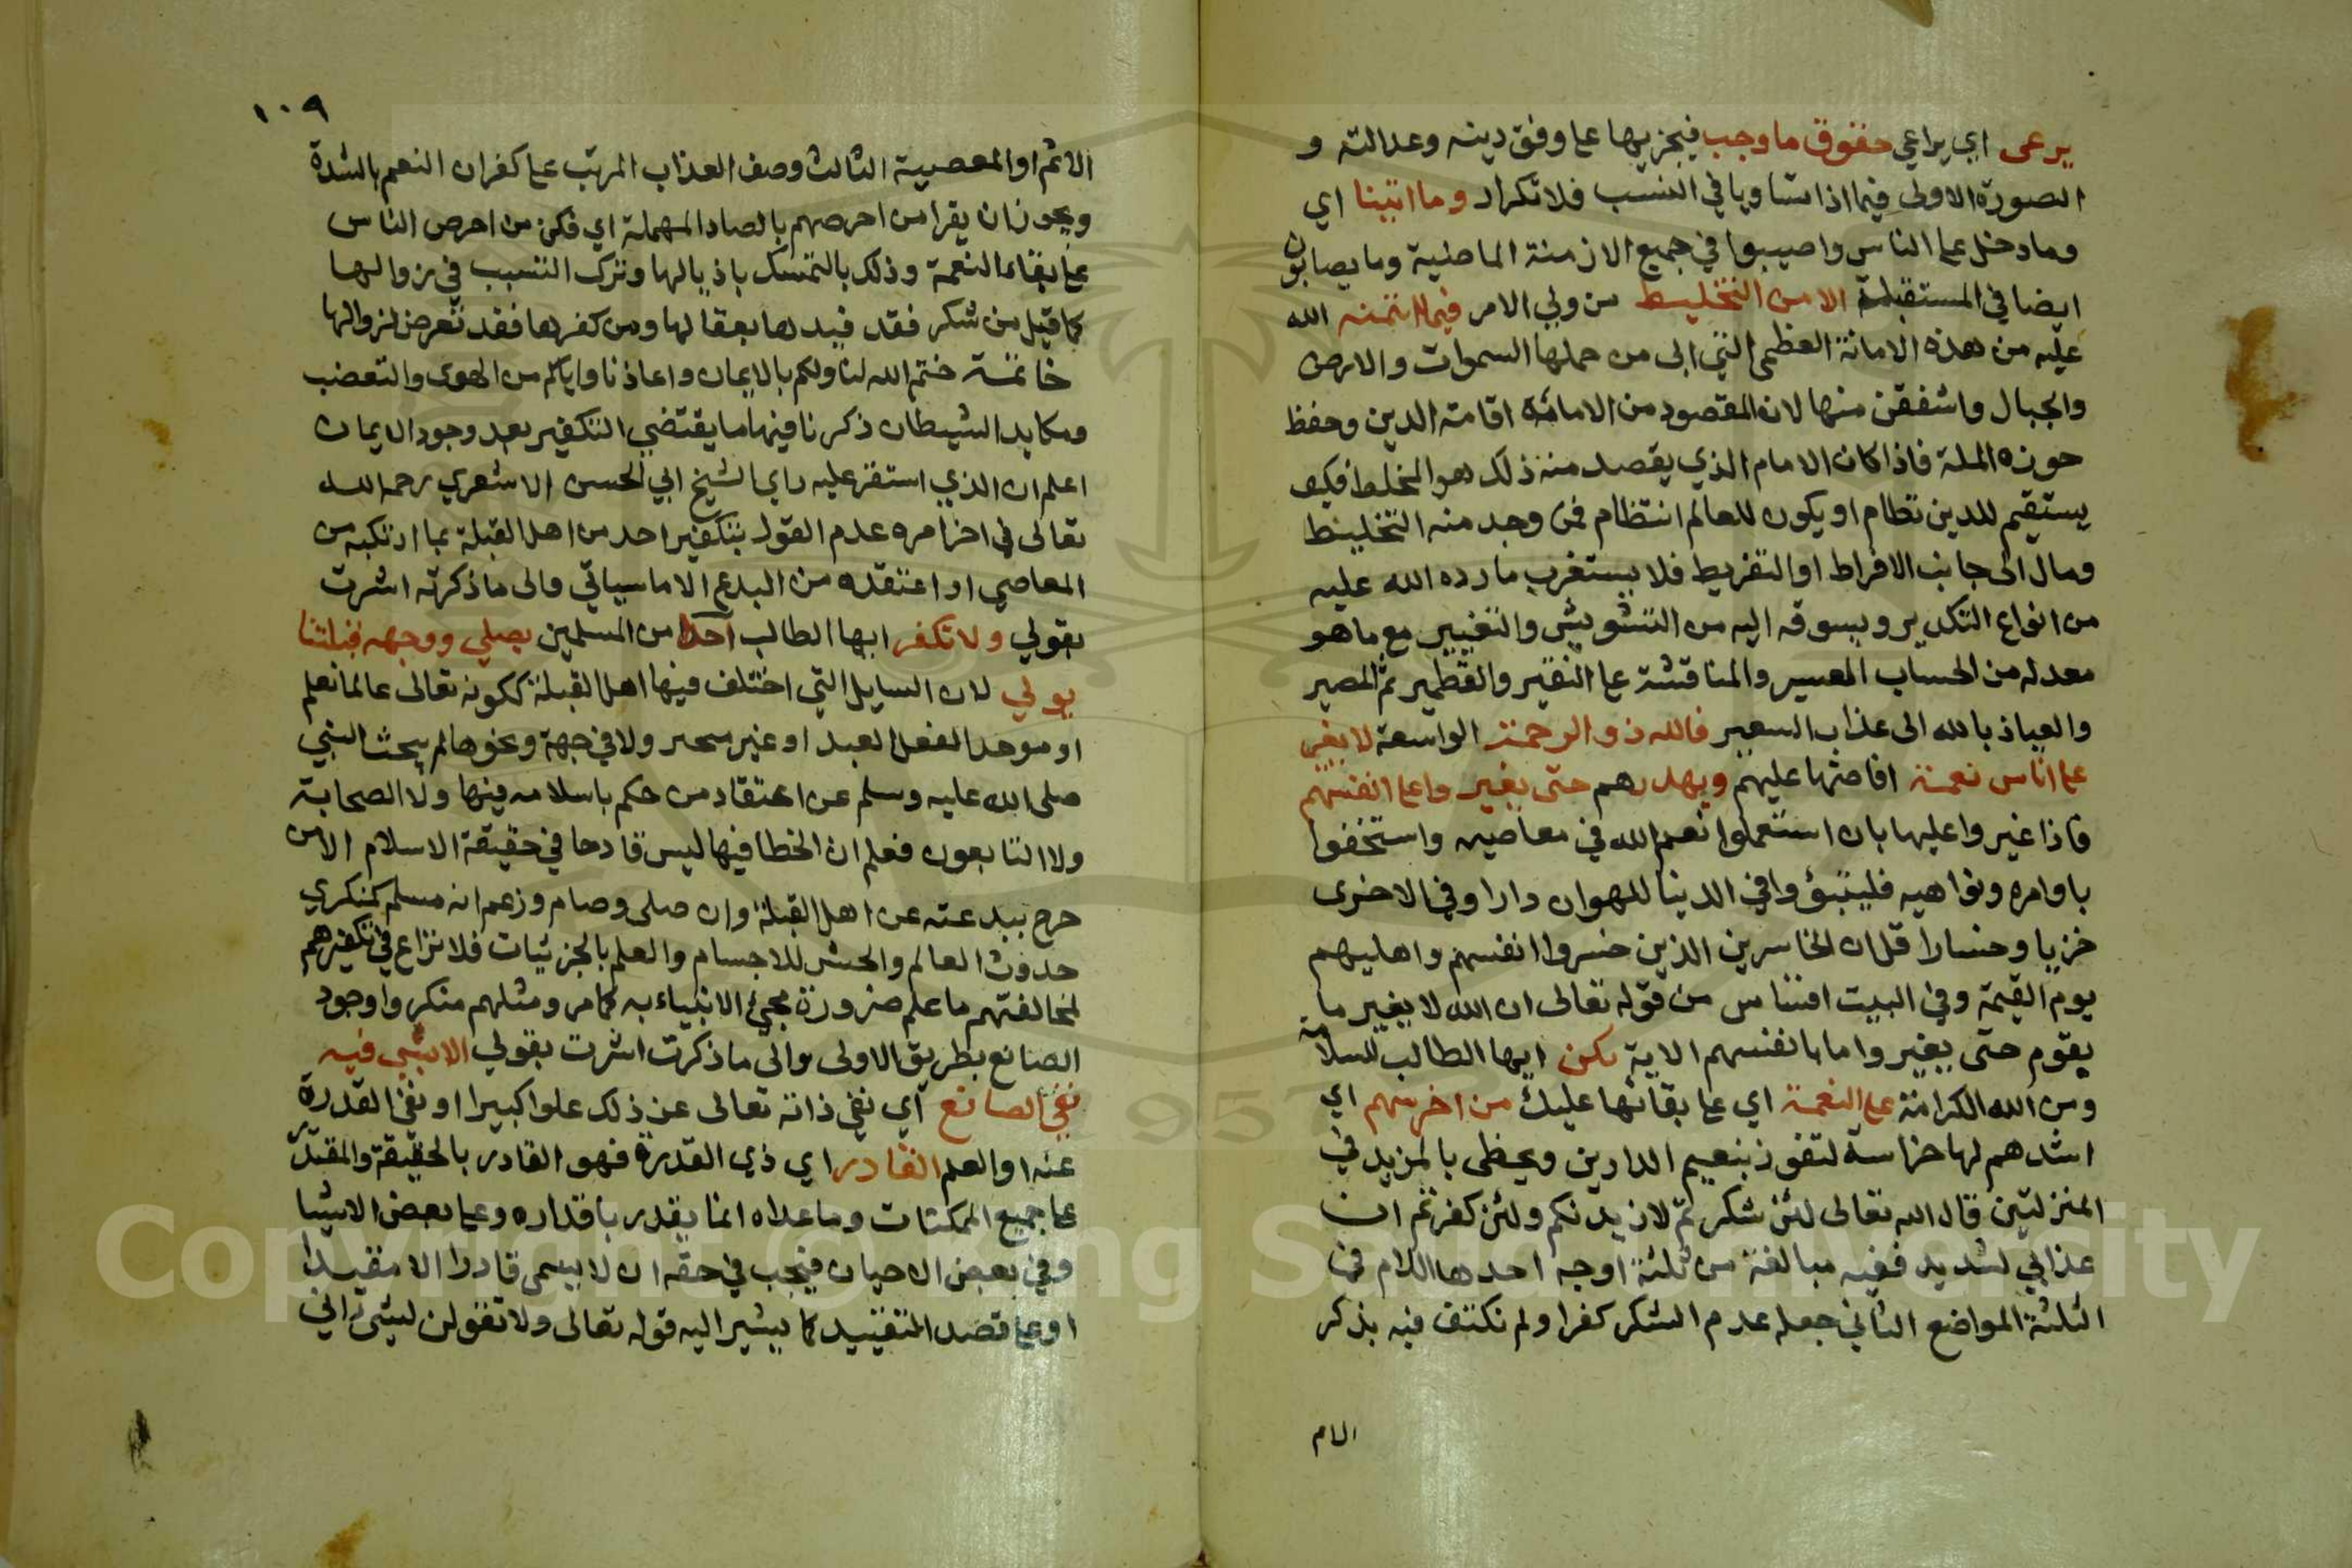 يرعى اي يراعي حقوق ما وجب فيجزيها علے وفق دينه وعدالته و
الصورة الاولى فيما اذا تساويا في النسب فلا تكرار وما اتينا اي
وما دخل علے الناس واصيبوا في جميع الازمنة الماضية وما يصابون
ايضا في المستقبلة الا من التخليط من ولي الامر فيما ائتمنه الله
عليه من هذه الامانة العظمى التي ابى من حملها السموات والارض
والجبال واشفقن منها لان المقصود من الامامة اقامة الدين وحفظ
حوزه الملة فاذا كان الامام الذي يقصد منه ذلك هو المخلط فكيف
يستقيم للدين نظام او يكون للعالم انتظام فمن وجد منه التخليط
ومال الى جانب الافراط او التفريط فلا يستغرب ما رده الله عليه
من انواع التكدير ويسوقه اليه من التشويش والتغيير مع ما هو
معد له من الحساب العسير والمناقشة علے النقير والقطمير ثم المصير
والعياذ بالله الى عذاب السعير فالله ذو الرحمة الواسعة لا يغير
علے اناس نعمة افاضها عليهم ويهدرهم حتى يغيروا علے انفسهم
فاذا غيروا عليها بان استعملوا نعم الله في معاصيه واستخفوا
باوامره ونواهيه فليتبؤوا في الدينا للهوان دارا وفي الاخرى
خزيا وخسارا قل ان الخاسرين الذين خسروا انفسهم واهليهم
يوم القيمة وفي البيت اقتناس من قوله تعالى ان الله لا يغير ما
بقوم حتى يغيروا ما بانفسهم الاية فكن ايها الطالب للسلامة
ومن الله الكرامة علے النعمة اي علے بقائها عليك من احرسهم اي
اشدهم لها حراسة لتفوز بنعيم الدارين ويحظى بالمزيد في
المنزلتين قال الله تعالى لئن شكرتم لازيدنكم ولئن كفرتم ان
عذابي لشديد ففيه مبالغة من ثلثة اوجه احدها اللام في
الثلثة المواضع الثاني جعله عدم الشكر كفرا ولم نكتف فيه بذكر
الام
١٠٩
الاثم او المعصية الثالث وصف العذاب المرتب علے كفران النعم بالشدة
ويجوز ان يقرا من احرصهم بالصاد المهملة اي فكن من احرص الناس
علے بقاء النعمة وذلك بالتمسك باذيالها وترك التسبب في زوالها
كما قيل من شكر فقد قيدها بعقالها ومن كفرها فقد تعرض لزوالها
خاتمة ختم الله لنا ولكم بالايمان واعاذنا واياكم من الهوى والتعصب
ومكايد الشيطان ذكرنا فيها ما يقتضي التكفير بعد وجود الايمان
اعلم ان الذي استقر عليه راي الشيخ ابي الحسن الاشعري رحمه الله
تعالى في اخر امره عدم القول بتكفير احد من اهل القبلة بما ارتكبه من
المعاصي او اعتقده من البدع الا ما سياتي والى ما ذكرته اشرت
بقولي ولا تكفر ايها الطالب احدا من المسلمين يصلي ووجهه قبلتنا
يولي لان السايل التي اختلف فيها اهل القبلة ككونه تعالى عالما نعلم
او موحد الفعل العبد او غير متحيز ولا في جهة ونحوها لم يبحث النبي
صلى الله عليه وسلم عن اعتقاد من حكم باسلامه فيها ولا الصحابة
ولا التابعون فعلم ان الخطا فيها ليس قادحا في حقيقة الاسلام الا من
خرج ببدعته عن اهل القبلة وان صلى وصام وزعم انه مسلم كمنكري
حدوث العالم والحشر للاجسام والعلم بالجزئيات فلا نزاع في تكفيرهم
لمخالفتهم ما علم ضرورة مجئ الانبياء به كما مر ومثلهم منكروا وجود
الصانع بطريق الاولى والى ما ذكرت اشرت بقولي الا بشي فيه
نفي الصانع اي نفي ذاته تعالى عن ذلك علوا كبيرا او نفي القدرة
عنه او العلم القادر اي ذي القدرة فهو القادر بالحقيقة والمقتدر
علے جميع الممكنات وما عداه انما يقدر باقداره وعلے بعض الاشيا
وفي بعض الاحيان فيجب في حقه ان لا يسمى قادرا الا مقيدا
او علے قصد التقييد كما يشير اليه قوله تعالى ولا تقولن لشئ اني
Copyright © King Saud University
1957